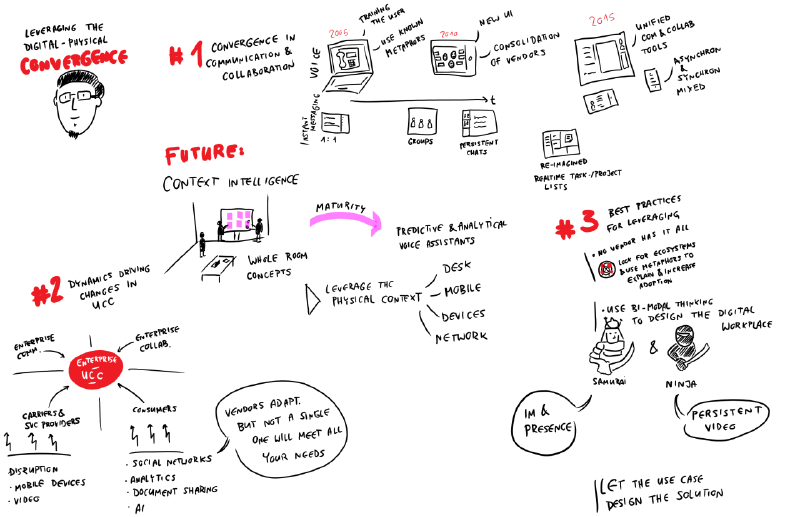 LEVERAGING THE
DIGITAL-PHYSICAL
CONVERGENCE
#1 CONVERGENCE IN
COMMUNICATION &
COLLABORATION
VOICE
2005
TRAINING
THE USER
USE KNOWN
METAPHORS
2010
NEW UI
CONSOLIDATION
OF VENDORS
2015
UNIFIED
COM & COLLAB
TOOLS
ASYNCHRON
&
SYNCHRON
MIXED
t
INSTANT
MESSAGING
1:1
GROUPS
PERSISTENT
CHATS
RE-IMAGINED
REALTIME TASK-/PROJECT
LISTS
FUTURE:
CONTEXT INTELLIGENCE
WHOLE ROOM
CONCEPTS
MATURITY
PREDICTIVE & ANALYTICAL
VOICE ASSISTANTS
LEVERAGE THE
PHYSICAL CONTEXT
DESK
MOBILE
DEVICES
NETWORK
#2 DYNAMICS DRIVING
CHANGES IN
UCC
ENTERPRISE
COMM.
ENTERPRISE
COLLAB.
ENTERPRISE
UCC
CARRIERS &
SVC PROVIDERS
DISRUPTION
· MOBILE DEVICES
· VIDEO
CONSUMERS
· SOCIAL NETWORKS
· ANALYTICS
· DOCUMENT SHARING
· AI
VENDORS ADAPT.
BUT NOT A SINGLE
ONE WILL MEET ALL
YOUR NEEDS
#3 BEST PRACTICES
FOR LEVERAGING
· NO VENDOR HAS IT ALL
LOOK FOR ECOSYSTEMS
& USE METAPHORS TO
EXPLAIN & INCREASE
ADOPTION
· USE BI-MODAL THINKING
TO DESIGN THE DIGITAL
WORKPLACE
SAMURAI
&
NINJA
IM &
PRESENCE
PERSISTENT
VIDEO
LET THE USE CASE
DESIGN THE SOLUTION